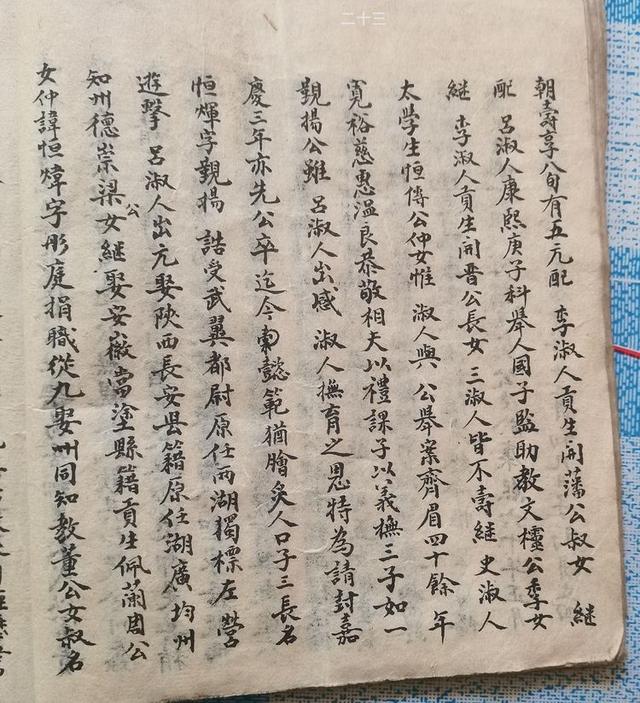 二十三
朝壽享八旬有五元配 李淑人貢生開藩公叔女 継
配 呂淑人康熙庚子科舉人國子監助教文櫺公季女
継 李淑人貢生開晋公長女三淑人皆不壽継 史淑人
太學生恒傳公仲女惟 淑人與 公舉案齊眉四十餘年
寛裕慈惠温良恭敬相夫以禮課子以義撫三子如一
觀揚公雖 呂淑人出感 淑人撫育之恩特為請封嘉
慶三年亦先公卒迄今懿範猶膾炙人口子三長名
恒煇字觀揚 誥受武翼都尉原任兩湖獨標左營
遊擊 呂淑人出元娶陝西長安县籍原任湖廣均州
知州德崇梁公女継娶安徽當塗縣籍貢生佩蘭周公
女仲諱恒煒字彤庭捐職從九娶州同知教董公女叔名